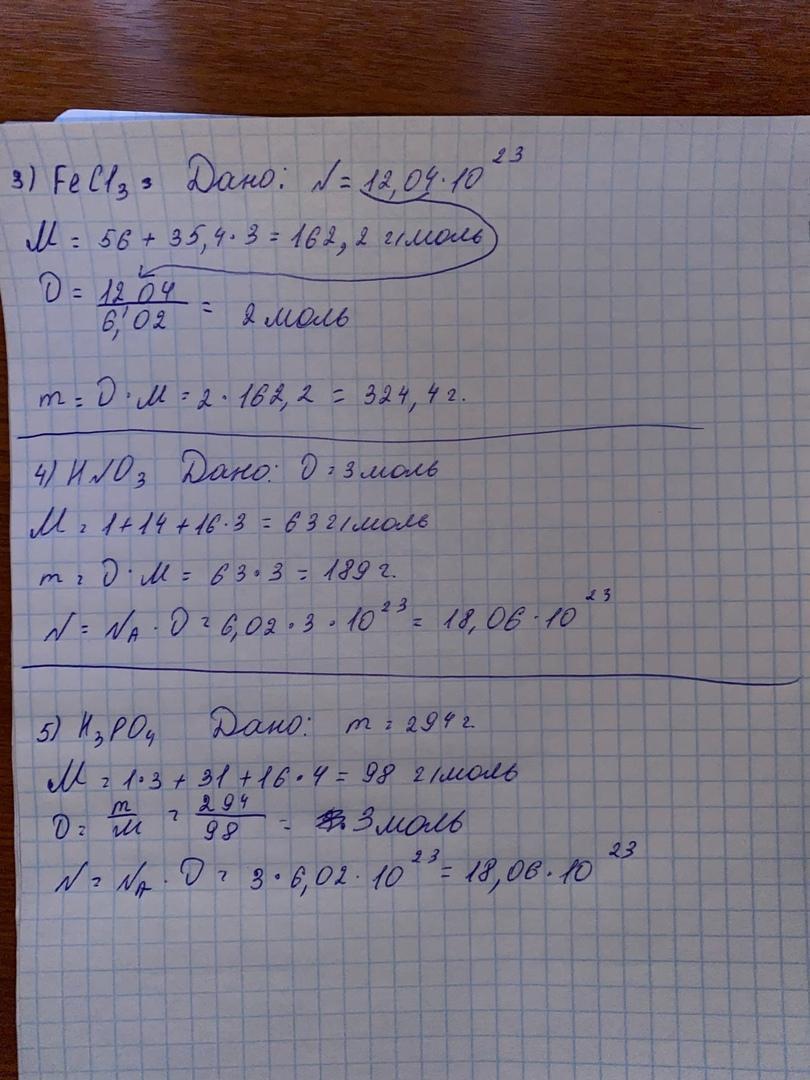 3) FeCl₃ = Дано: N = 12,04·10²³
M = 56 + 35,4·3 = 162,2 г/моль
D = 12,04/6,02 = 2 моль
m = D·M = 2·162,2 = 324,4 г.
4) HNO₃ Дано: D = 3 моль
M = 1+14+16·3 = 63 г/моль
m = D·M = 63·3 = 189 г.
N = Nₐ·D = 6,02·3·10²³ = 18,06·10²³
5) H₃PO₄ Дано: m = 294 г.
M = 1·3 + 31 + 16·4 = 98 г/моль
D = m/M = 294/98 = 3 моль
N = Nₐ·D = 3·6,02·10²³ = 18,06·10²³